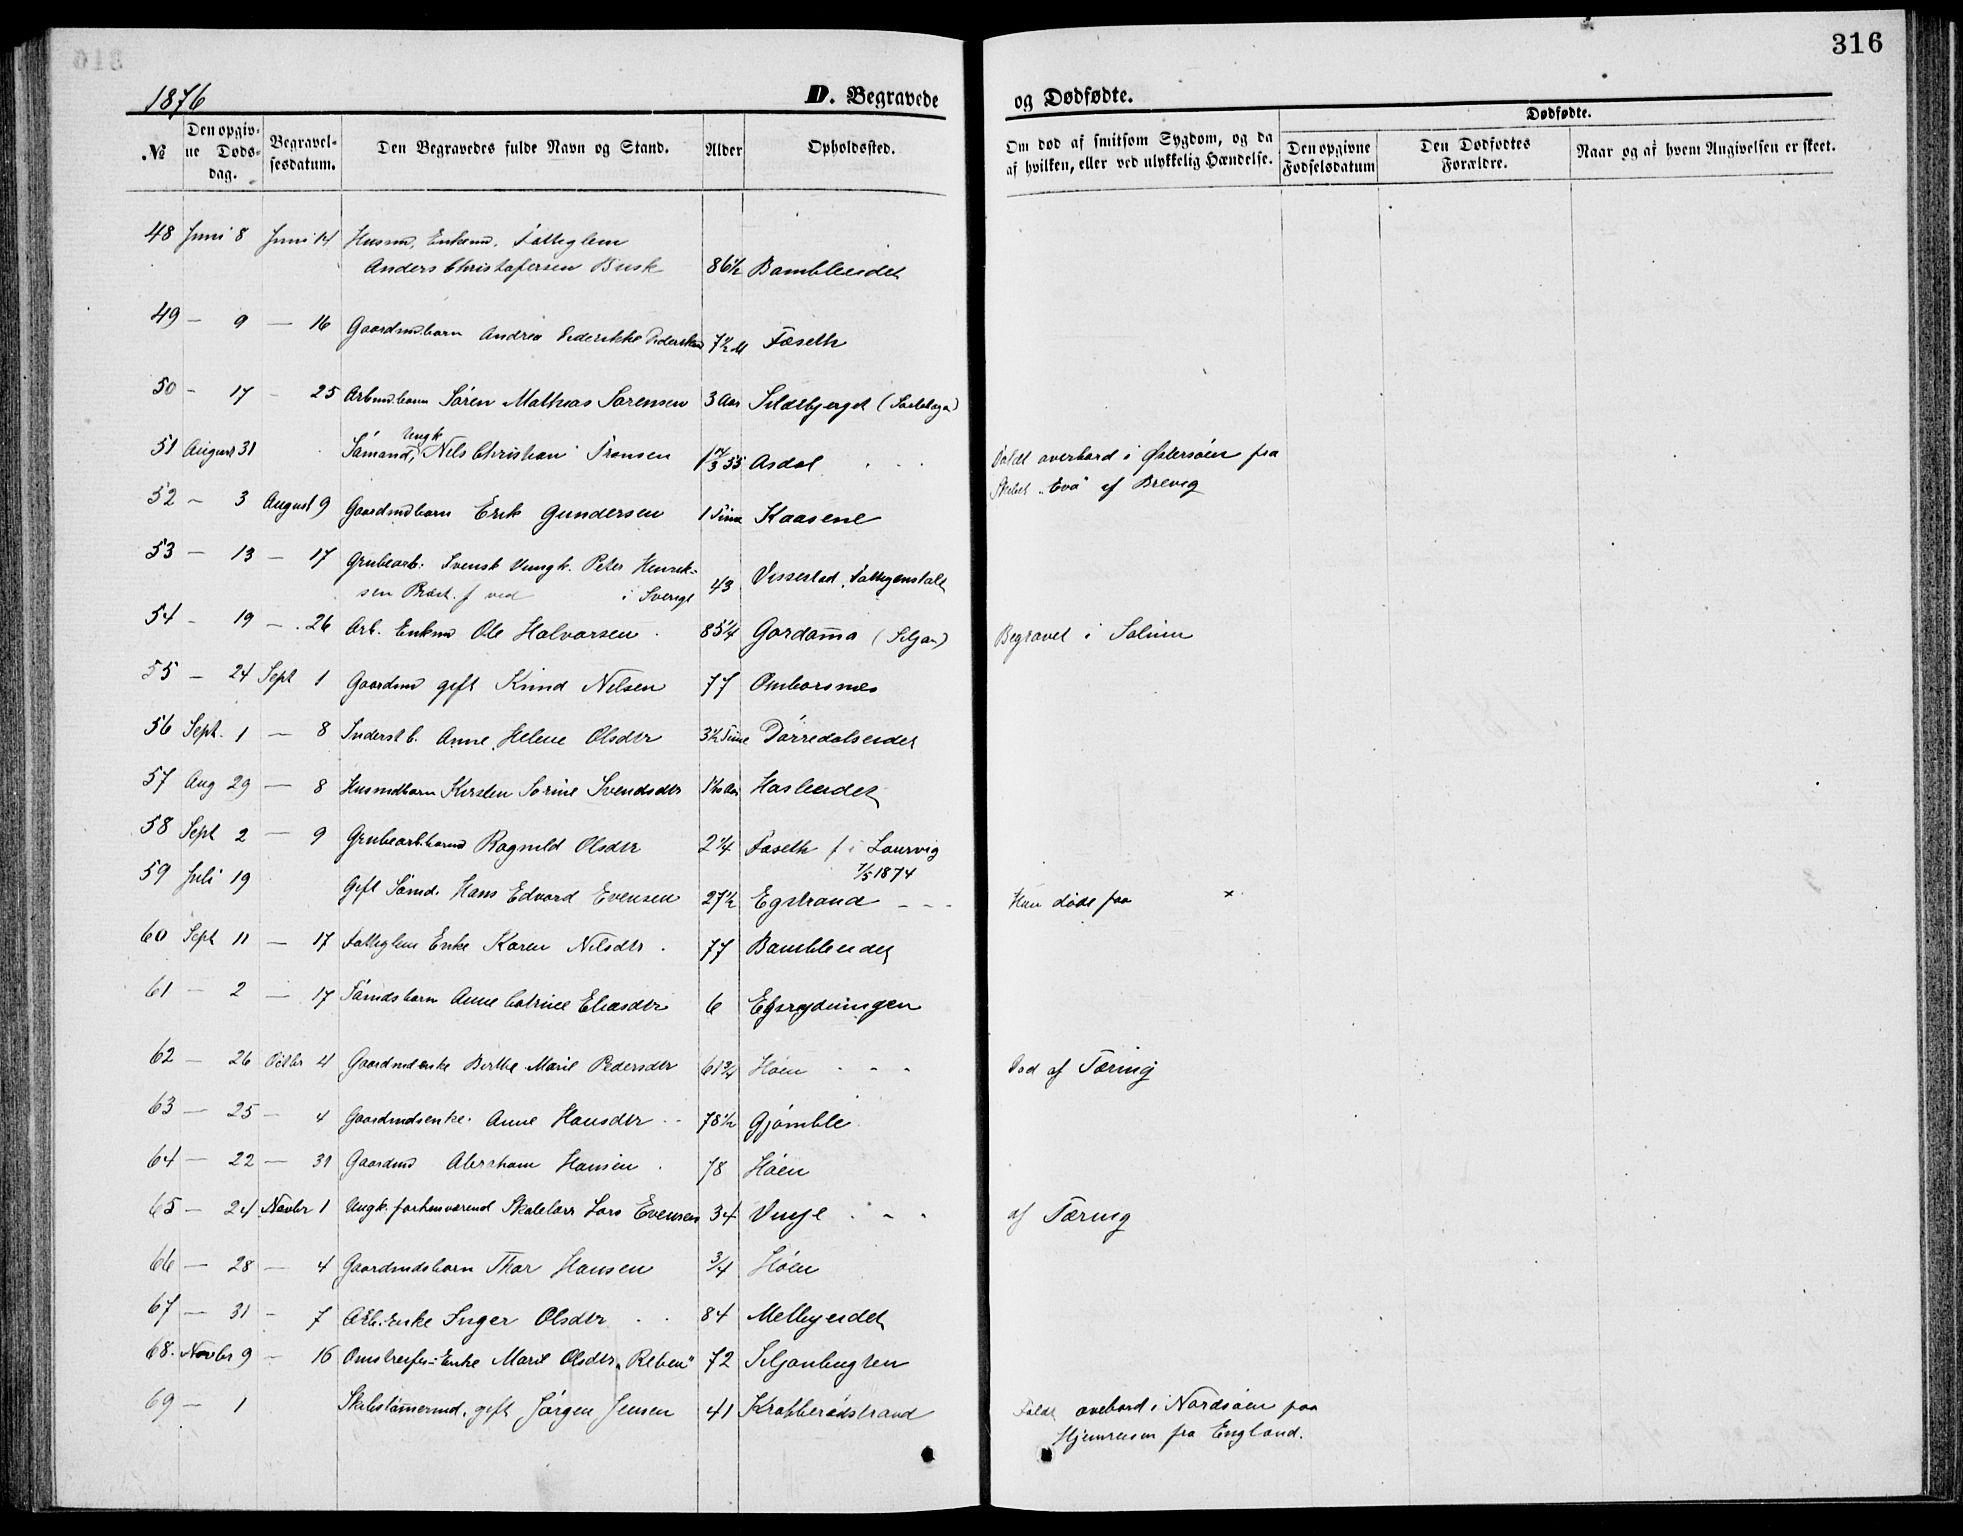 316
1876
D. Begravede og Dødfødte.
Dødfødte.
№ Den opgivne Dødsdag. Begravelsesdatum. Den Begravedes fulde Navn og Stand. Alder Opholdssted. Om død af smitsom Sygdom, og da af hvilken, eller ved ulykkelig Hændelse. Den opgivne Fødselsdatum Den Dødfødtes Forældre. Naar og af hvem Angivelsen er skeet.
48 Juni 8 Juni 14 Husmd, Enkemd. Fattiglem
Anders Christofersen Busk 86½ Bambleeidet
49 — 9 — 16 Gaardmdbarn Andrea Pederikke 7½ M Faseth
50 - 17 - 25 Arbmd.barn Søren Mathias Sørensen 3 Aar Sildebjerget
51 August 31 Sømand, Ungk Nels Christian Fransen Asdal - - - Faldt overbord i Østersøen fra
Skibet "Eva" af Brevig
52 - 3 August 9 Gaardmdbarn Erik Gundersen 1 Time Kaasene
53 — 13 — 17 Grubearb. Svensk Ungk. Peter Henrik-
sen f ved i Sverige 43 Vissestad, Fattiganstalt
54 - 19 - 26 Arb. Enkmd Ole Halvorsen 85¼ Begravet i Solum
55 - 24 Sept 1 Gaardmd gift Knud Nilsen 77 Omborsnes
56 Sept. 1 — 8 Inderst b. Anne Helene Olsdtr 3½ Time Tørredalseidet
57 Aug 29 — 8 Husmdbarn Kirsten Sørine Svendsdtr Hasleeidet
58 Sept 2 — 9 Grubearb.barn Ragnild Olsdtr 2¼ Faseth f i Laurvig
1/5 1874
59 Juli 19 Gift Sømd. Hans Edvard Evensen 27½ Egstrand - - - Han døde paa ×
60 Sept 11 — 17 Fattiglem Enke Karen Nilsdtr 77 Bambleeidet
61 - 2 — 17 Sømdsbarn Anne Catrine Eliasdtr 6 Egsrydningen
62 - 26 Octbr 4 Gaardmdenke Berthe Marie Pedersdtr 61¾ Høen - - - Død af Tæring
63 — 25 - 4 Gaardmdsenke Anne Hansdtr 78½ Gjømble
64 — 22 — 31 Gaardmd Abraham Hansen 78 Høen
65 - 24 Novbr 1 Ungk. forhenværend Skolelær Lars Evensen 34 Vinje - - - af Tæring
66 — 28 - 4 Gaardmdsbarn Thor Hansen ¾ Høen
67 — 31 - 7 Arb. enke Inger Olsdtr 84 Melbyeidet
68. Novbr 9 - 16 Omstreifer-Enke Marie Olsdtr "Reben" 72
69 — 1 Skibstømermd. gift Jørgen Jensen 41 Krabberødstrand Faldt overbord i Nordsøen paa
Hjemreisen fra England.